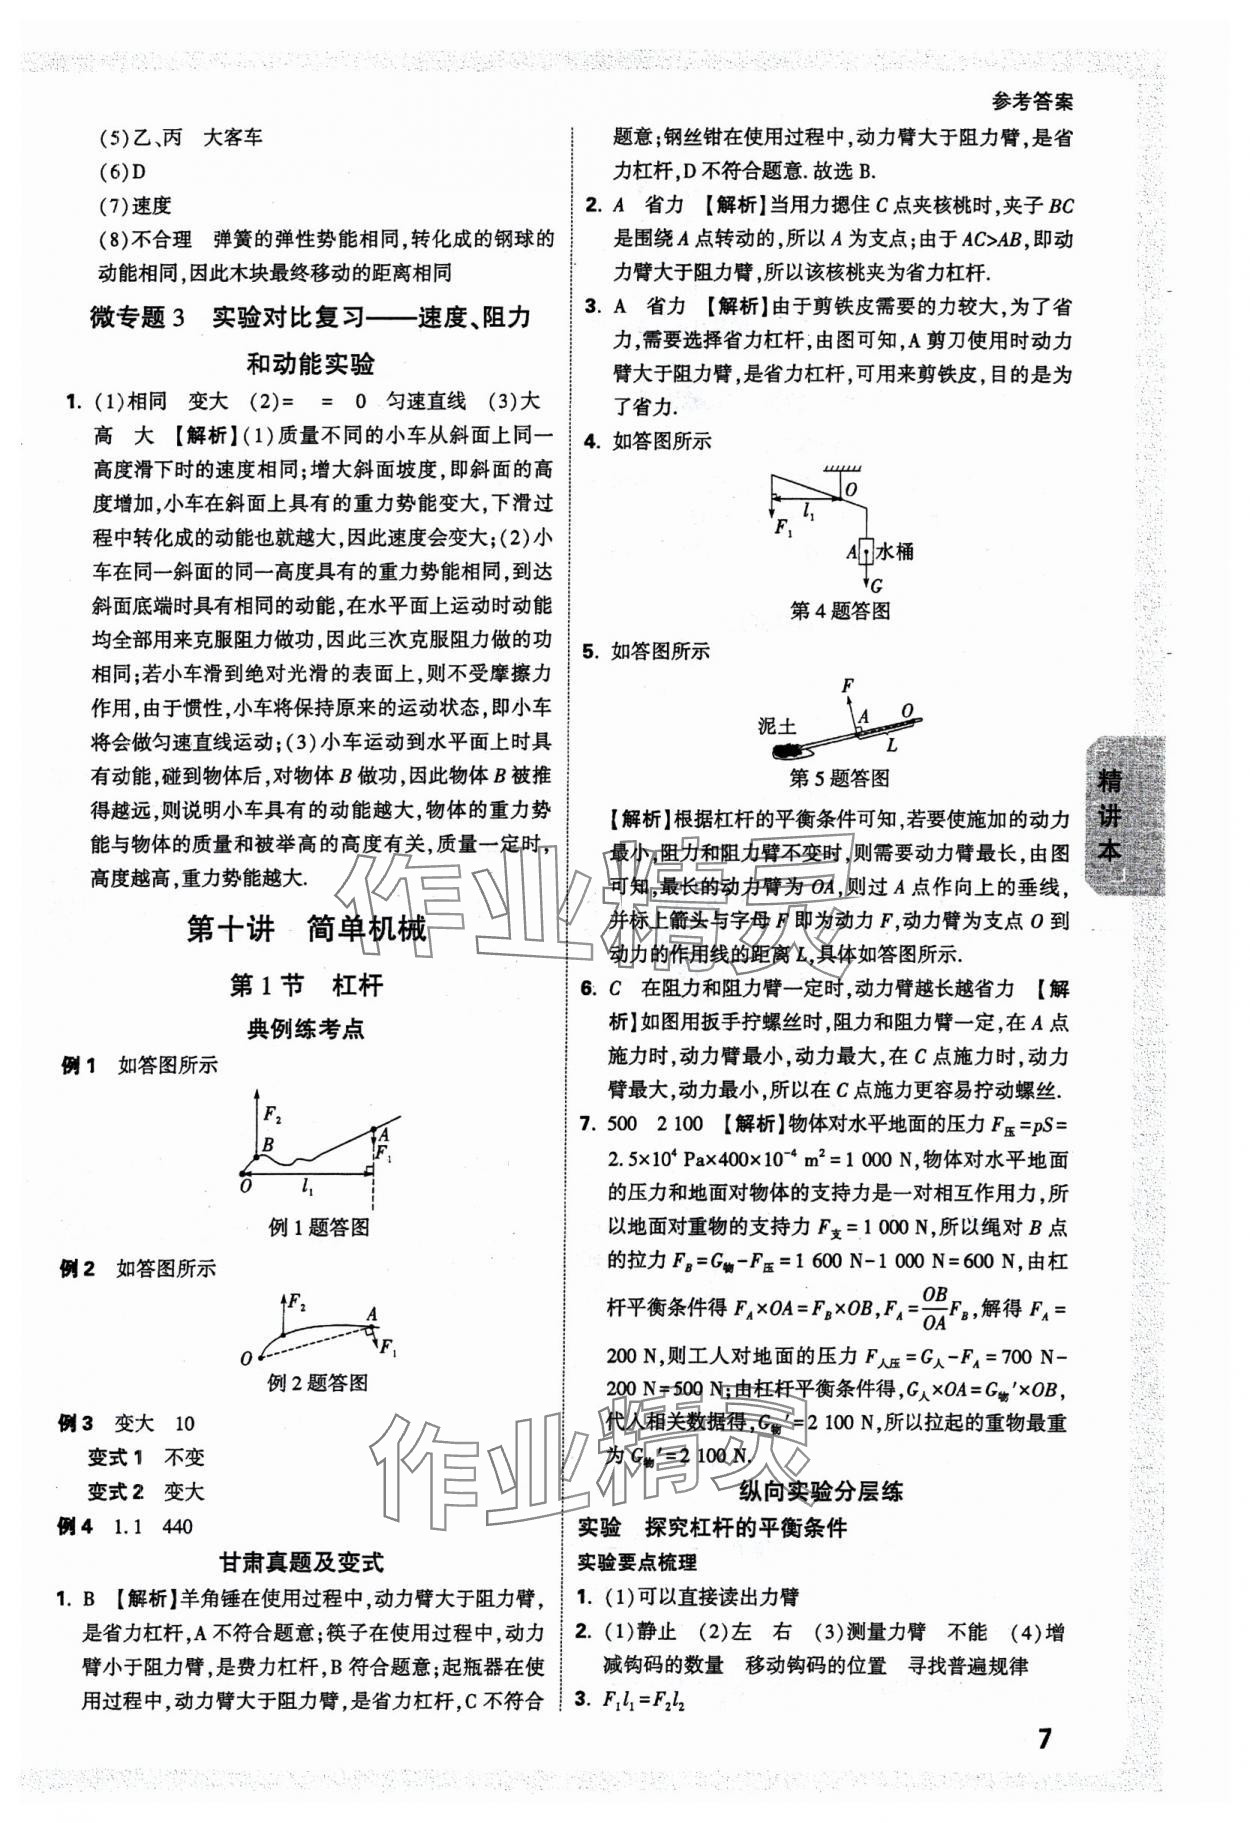 参考答案
(5)乙、丙　大客车
(6)D
(7)速度
(8)不合理　弹簧的弹性势能相同,转化成的钢球的
动能相同,因此木块最终移动的距离相同
微专题 3　实验对比复习——速度、阻力
和动能实验
1. (1)相同　变大　(2)=　=　0　匀速直线　(3)大
高　大　【解析】(1)质量不同的小车从斜面上同一
高度滑下时的速度相同;增大斜面坡度,即斜面的高
度增加,小车在斜面上具有的重力势能变大,下滑过
程中转化成的动能也就越大,因此速度会变大;(2)小
车在同一斜面的同一高度具有的重力势能相同,到达
斜面底端时具有相同的动能,在水平面上运动时动能
均全部用来克服阻力做功,因此三次克服阻力做的功
相同;若小车滑到绝对光滑的表面上,则不受摩擦力
作用,由于惯性,小车将保持原来的运动状态,即小车
将会做匀速直线运动;(3)小车运动到水平面上时具
有动能,碰到物体后,对物体 B 做功,因此物体 B 被推
得越远,则说明小车具有的动能越大,物体的重力势
能与物体的质量和被举高的高度有关,质量一定时,
高度越高,重力势能越大.
第十讲　简单机械
第 1 节　杠杆
典例练考点
例 1　如答图所示
F₂
B
A
F₁
O
l₁
例 1 题答图
例 2　如答图所示
F₂
A
O
F₁
例 2 题答图
例 3　变大　10
变式 1　不变
变式 2　变大
例 4　1.1　440
甘肃真题及变式
1. B　【解析】羊角锤在使用过程中,动力臂大于阻力臂,
是省力杠杆,A 不符合题意;筷子在使用过程中,动力
臂小于阻力臂,是费力杠杆,B 符合题意;起瓶器在使
用过程中,动力臂大于阻力臂,是省力杠杆,C 不符合
题意;钢丝钳在使用过程中,动力臂大于阻力臂,是省
力杠杆,D 不符合题意. 故选 B.
2. A　省力　【解析】当用力摁住 C 点夹核桃时,夹子 BC
是围绕 A 点转动的,所以 A 为支点;由于 AC>AB,即动
力臂大于阻力臂,所以该核桃夹为省力杠杆.
3. A　省力　【解析】由于剪铁皮需要的力较大,为了省
力,需要选择省力杠杆,由图可知,A 剪刀使用时动力
臂大于阻力臂,是省力杠杆,可用来剪铁皮,目的是为
了省力.
4. 如答图所示
O
l₁
F₁
A
水桶
G
第 4 题答图
5. 如答图所示
F
A
O
泥土
L
第 5 题答图
【解析】根据杠杆的平衡条件可知,若要使施加的动力
最小,阻力和阻力臂不变时,则需要动力臂最长,由图
可知,最长的动力臂为 OA,则过 A 点作向上的垂线,
并标上箭头与字母 F 即为动力 F,动力臂为支点 O 到
动力的作用线的距离 L,具体如答图所示.
6. C　在阻力和阻力臂一定时,动力臂越长越省力　【解
析】如图用扳手拧螺丝时,阻力和阻力臂一定,在 A 点
施力时,动力臂最小,动力最大,在 C 点施力时,动力
臂最大,动力最小,所以在 C 点施力更容易拧动螺丝.
7. 500　2 100　【解析】物体对水平地面的压力 F压=pS=
2.5×10⁴ Pa×400×10⁻⁴ m²=1 000 N,物体对水平地面
的压力和地面对物体的支持力是一对相互作用力,所
以地面对重物的支持力 F支=1 000 N,所以绳对 B 点
的拉力 F_B=G物-F压=1 600 N-1 000 N=600 N,由杠
杆平衡条件得 F_A×OA=F_B×OB,F_A=OB/OA F_B,解得 F_A=
200 N,则工人对地面的压力 F人压=G人-F_A=700 N-
200 N=500 N;由杠杆平衡条件得,G人×OA=G物′×OB,
代人相关数据得,G物′=2 100 N,所以拉起的重物最重
为 G物′=2 100 N.
纵向实验分层练
实验　探究杠杆的平衡条件
实验要点梳理
1. (1)可以直接读出力臂
2. (1)静止　(2)左　右　(3)测量力臂　不能　(4)增
减钩码的数量　移动钩码的位置　寻找普遍规律
3. F₁l₁=F₂l₂
精讲本
7
作业精灵
作业精灵